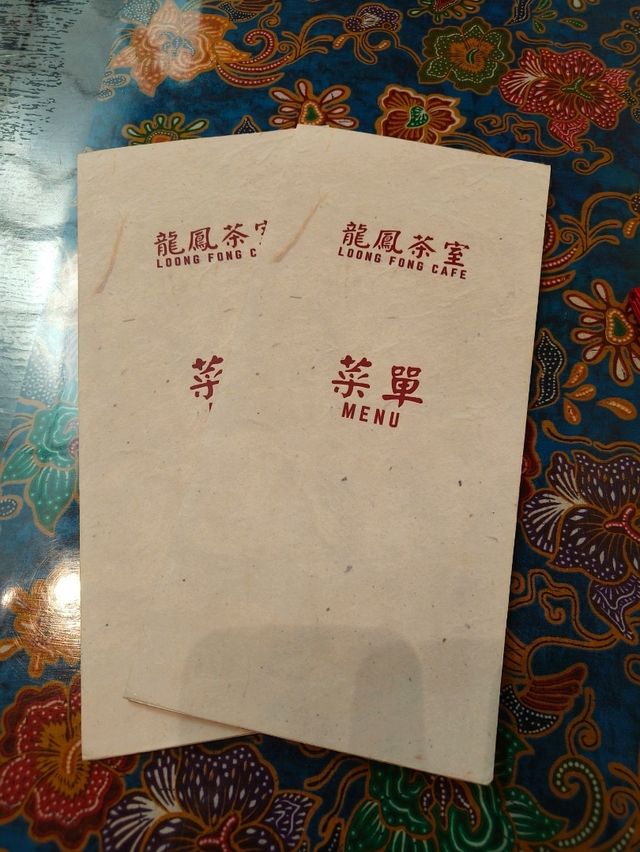 龍鳳茶室
LOONG FONG C
菜
龍鳳茶室
LOONG FONG CAFE
菜單
MENU